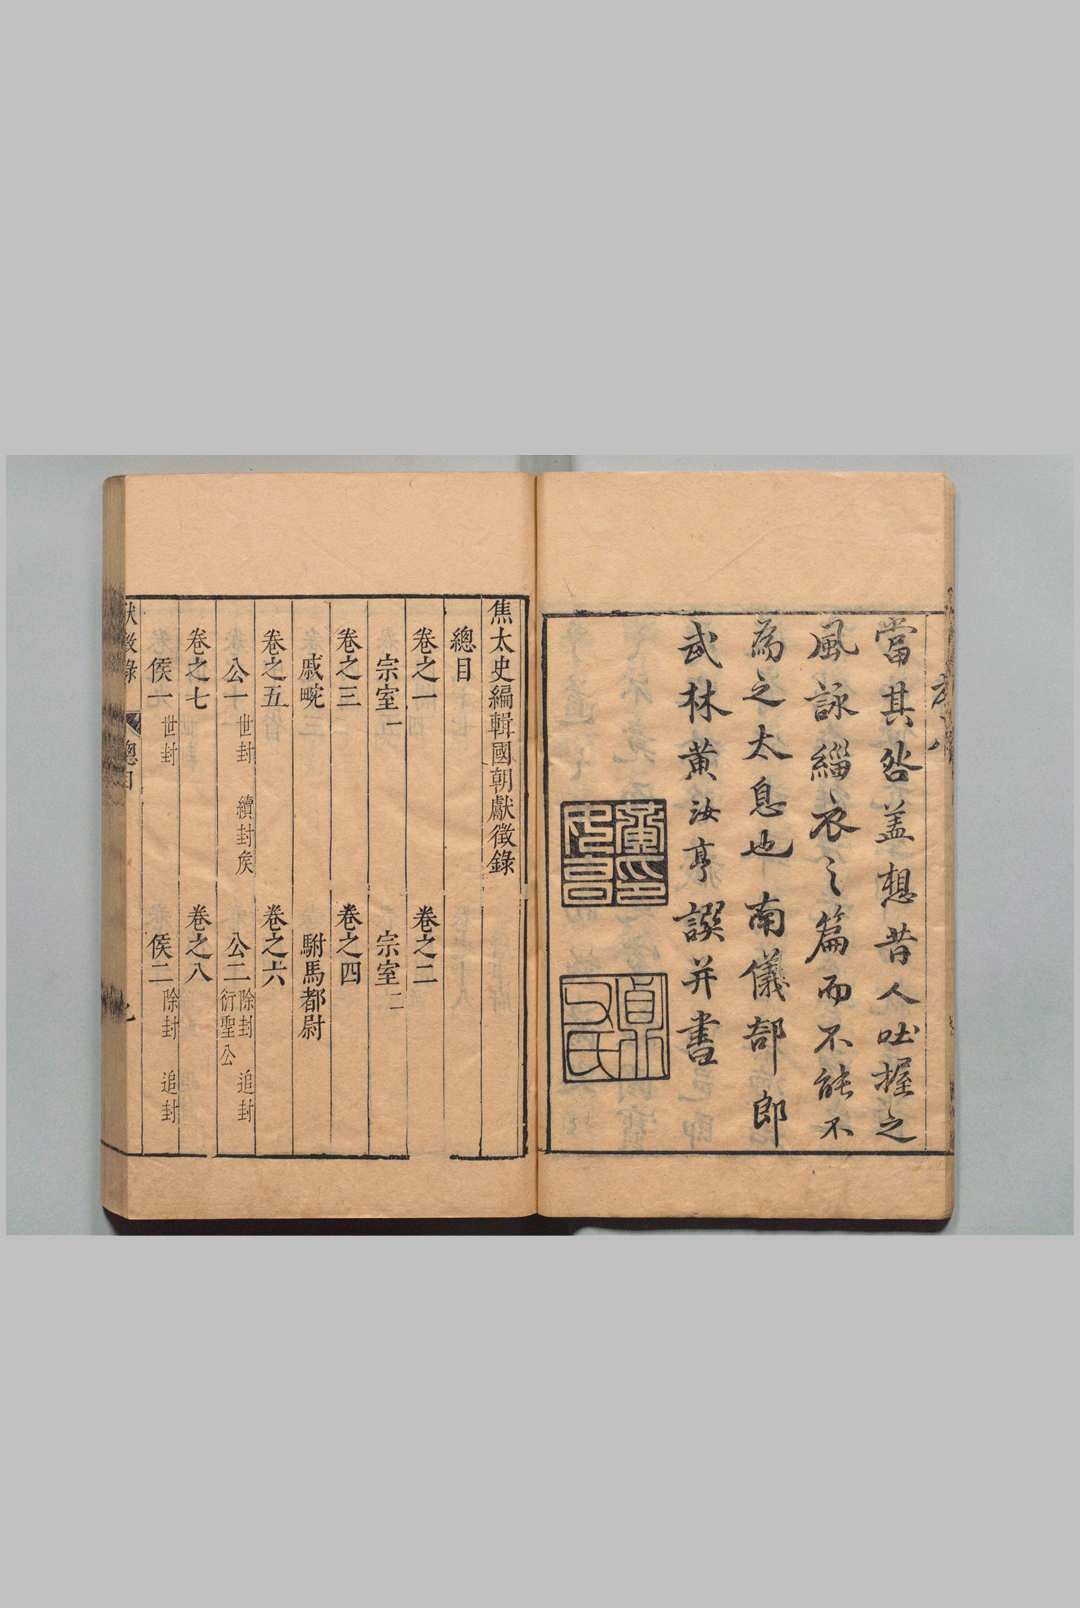 當其咎盖想昔人吐握之
風詠緇衣之篇而不能不
為之太息也南儀部郎
武林黄汝亨譔并書
黃汝亨印
貞父氏
焦太史編輯國朝獻徵錄
總目
卷之一　卷之二
宗室一　宗室二
卷之三　卷之四
戚畹　駙馬都尉
卷之五　卷之六
公一 世封 續封矦　公二 除封 追封 衍聖公
卷之七　卷之八
侯一 世封　侯二 除封 追封
獻徵錄 總目